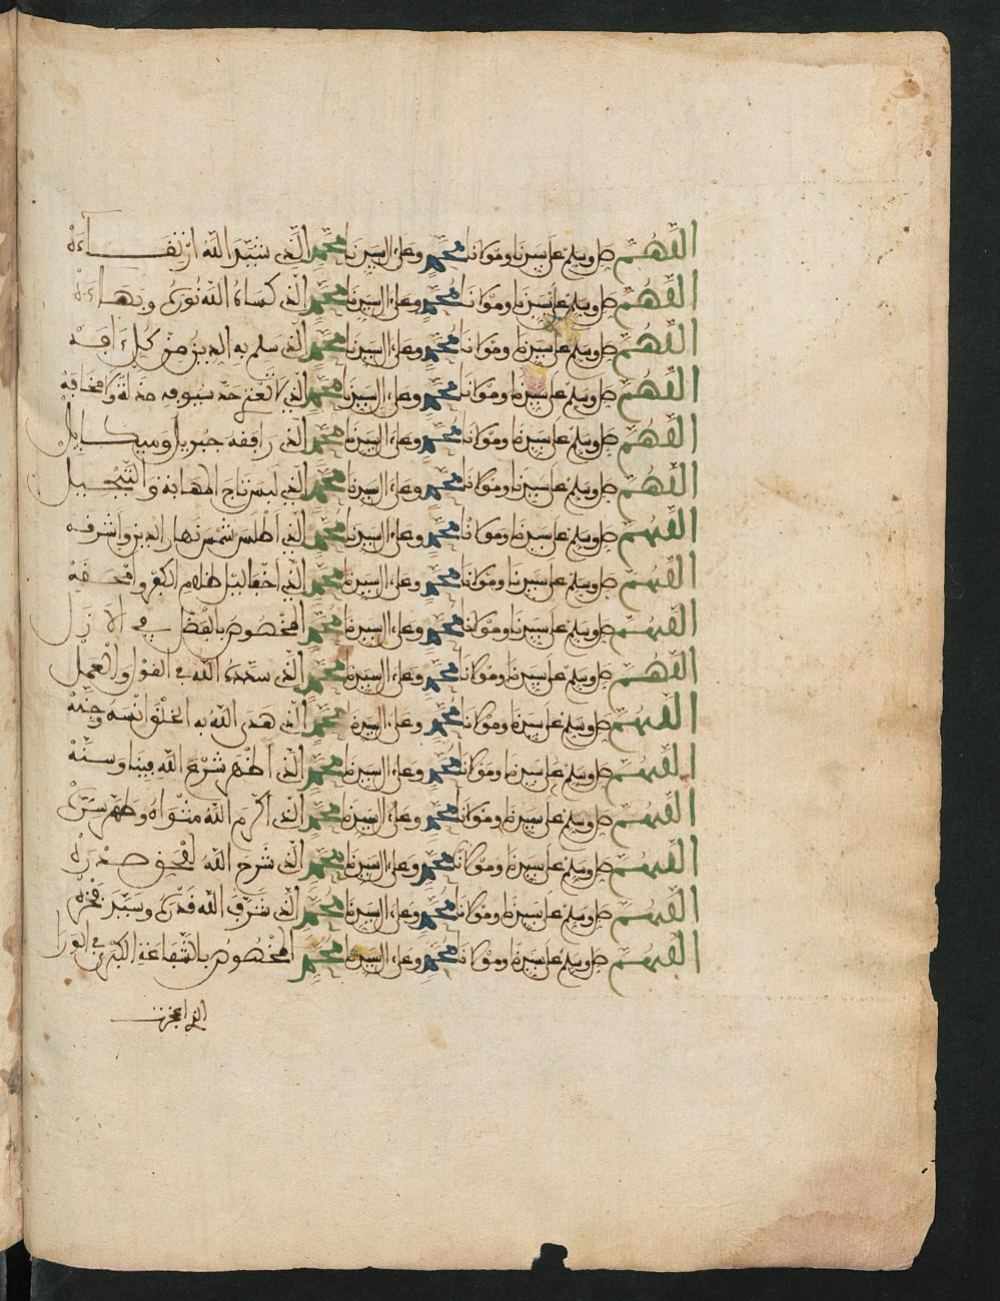 اللهم صل وسلم على سيدنا ومولانا محمد وعلى ءال سيدنا محمد الذي شيد الله ارتفـــاءه
اللهم صل وسلم على سيدنا ومولانا محمد وعلى ءال سيدنا محمد الذي كساه الله نوره وبهـاءه
اللهم صل وسلم على سيدنا ومولانا محمد وعلى ءال سيدنا محمد الذي سلم به الدين من كل ءافة
اللهم صل وسلم على سيدنا ومولانا محمد وعلى ءال سيدنا محمد الذي لا تعتري حد سيوفه
اللهم صل وسلم على سيدنا ومولانا محمد وعلى ءال سيدنا محمد الذي رافقه جبريل وميكـايل
اللهم صل وسلم على سيدنا ومولانا محمد وعلى ءال سيدنا محمد الذي لبس تاج المهابة والتبجيل
اللهم صل وسلم على سيدنا ومولانا محمد وعلى ءال سيدنا محمد الذي اطلس شمس نهار الدين واشرفه
اللهم صل وسلم على سيدنا ومولانا محمد وعلى ءال سيدنا محمد الذي ليل ظلام الكفر
اللهم صل وسلم على سيدنا ومولانا محمد وعلى ءال سيدنا محمد المخصوص بالفضل في الازل
اللهم صل وسلم على سيدنا ومولانا محمد وعلى ءال سيدنا محمد الذي سدده الله في القول والعمل
اللهم صل وسلم على سيدنا ومولانا محمد وعلى ءال سيدنا محمد الذي هدى الله به الخلق انسه وجنه
اللهم صل وسلم على سيدنا ومولانا محمد وعلى ءال سيدنا محمد الذي اظهر شرع الله فينا وسنه
اللهم صل وسلم على سيدنا ومولانا محمد وعلى ءال سيدنا محمد الذي اكرم الله مثواه وطهر سره
اللهم صل وسلم على سيدنا ومولانا محمد وعلى ءال سيدنا محمد الذي شرح الله للحق صدره
اللهم صل وسلم على سيدنا ومولانا محمد وعلى ءال سيدنا محمد الذي شرف الله قدره وشيد فخره
اللهم صل وسلم على سيدنا ومولانا محمد وعلى ءال سيدنا محمد المخصوص بالشفاعة الكبرى في الورا
الذي